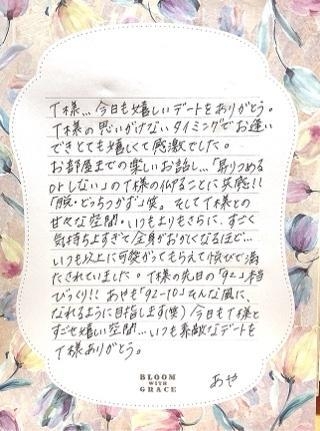 T様…今日も嬉しいデートをありがとう。
T様の思いがけないタイミングでお逢い
できとても嬉しくて感激でした。
お部屋までの楽しいお話し…「昇りつめる
orしない」のT様の仰ることに共感!!
「脱・どっちつかず」笑。そしてT様との
甘々な空間・いつもよりもさらに、すごく
気持ちよすぎて全身がおかしくなるほど…
いつも以上に可愛がってもらえて悦びで満
たされていました。T様の先日の「92」
びっくり!!あやも「92-10」そんな風に、
なれるように目指します(笑)今日もT様と
すごせ嬉しい空間…いつも素敵なデートを
T様ありがとう。
BLOOM
WITH
GRACE
あや